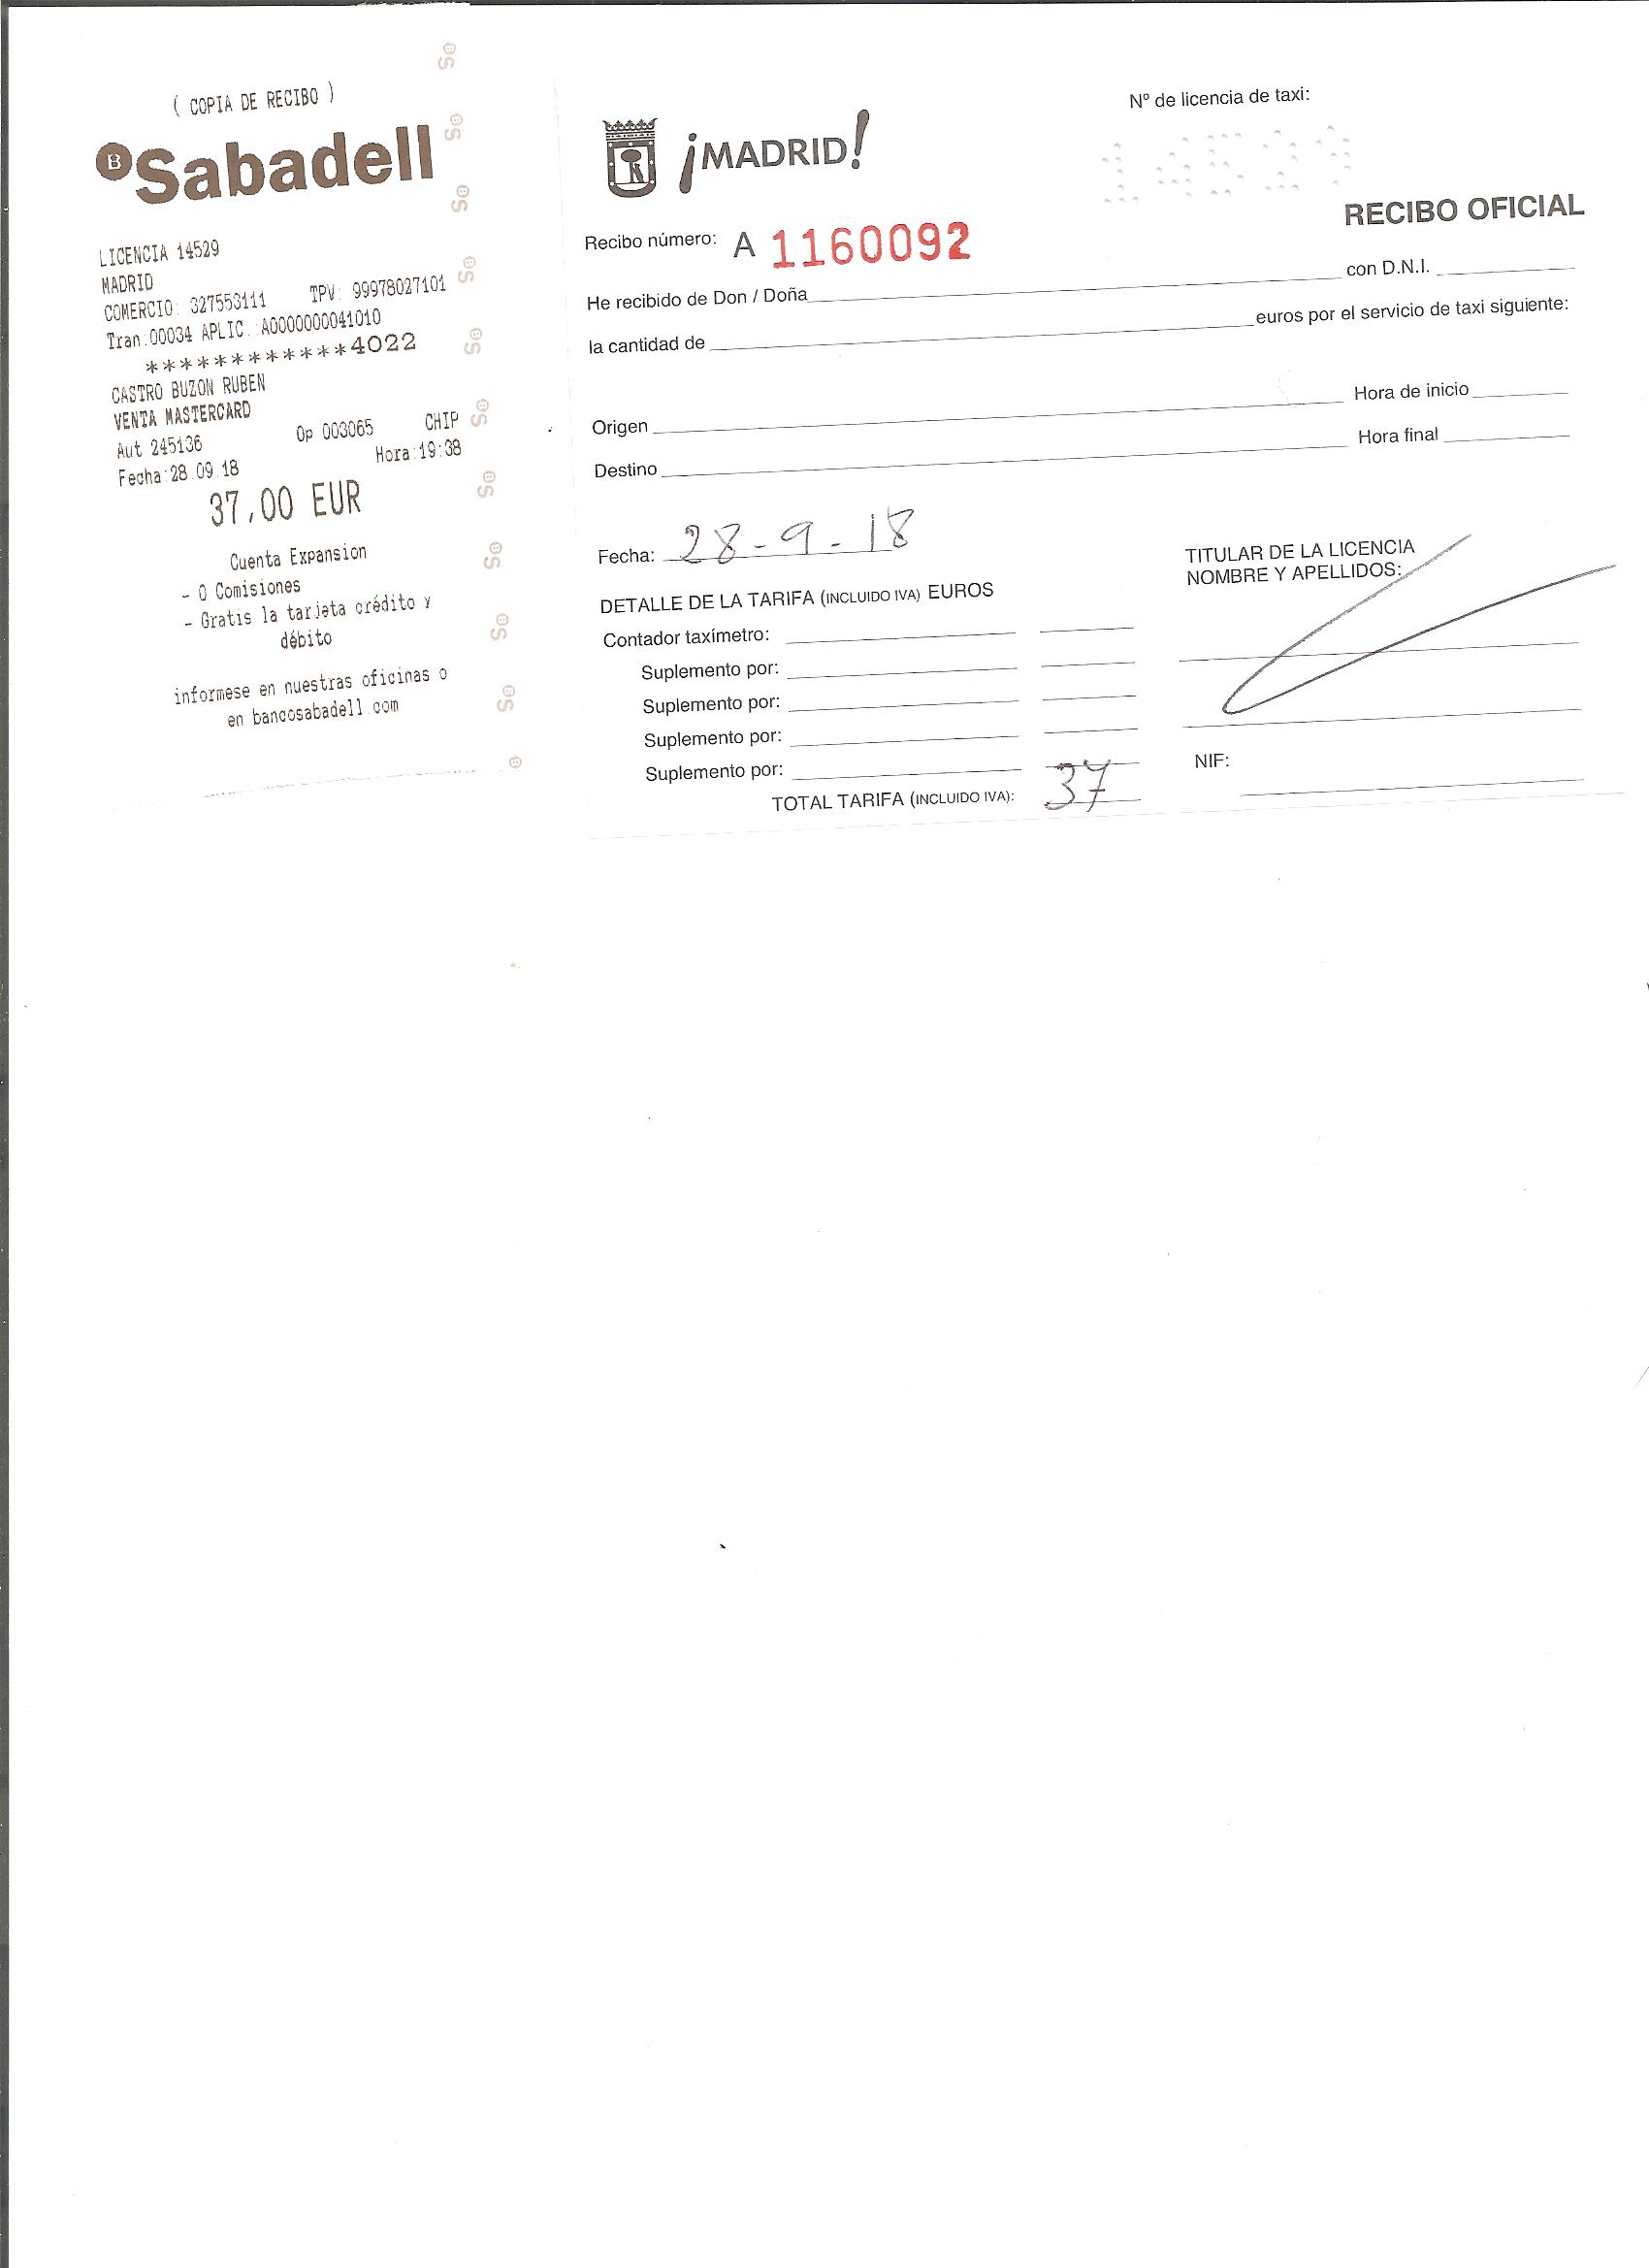 ( COPIA DE RECIBO )
B Sabadell
LICENCIA 14529
MADRID
COMERCIO: 327553111 TPV: 99978027101
Tran:00034 APLIC.:A0000000041010
************4022
CASTRO BUZON RUBEN
VENTA MASTERCARD
Aut 245136 Op 003065 CHIP
Fecha:28.09.18 Hora:19:38
37,00 EUR
Cuenta Expansion
- 0 Comisiones
- Gratis la tarjeta crédito y
débito
informese en nuestras oficinas o
en bancosabadell.com
¡MADRID!
Nº de licencia de taxi:
14529
RECIBO OFICIAL
Recibo número: A 1160092
He recibido de Don / Doña con D.N.I.
la cantidad de euros por el servicio de taxi siguiente:
Origen Hora de inicio
Destino Hora final
Fecha: 28-9-18
DETALLE DE LA TARIFA (INCLUIDO IVA) EUROS
Contador taxímetro:
Suplemento por:
Suplemento por:
Suplemento por:
Suplemento por:
TOTAL TARIFA (INCLUIDO IVA): 37
TITULAR DE LA LICENCIA
NOMBRE Y APELLIDOS:
NIF: